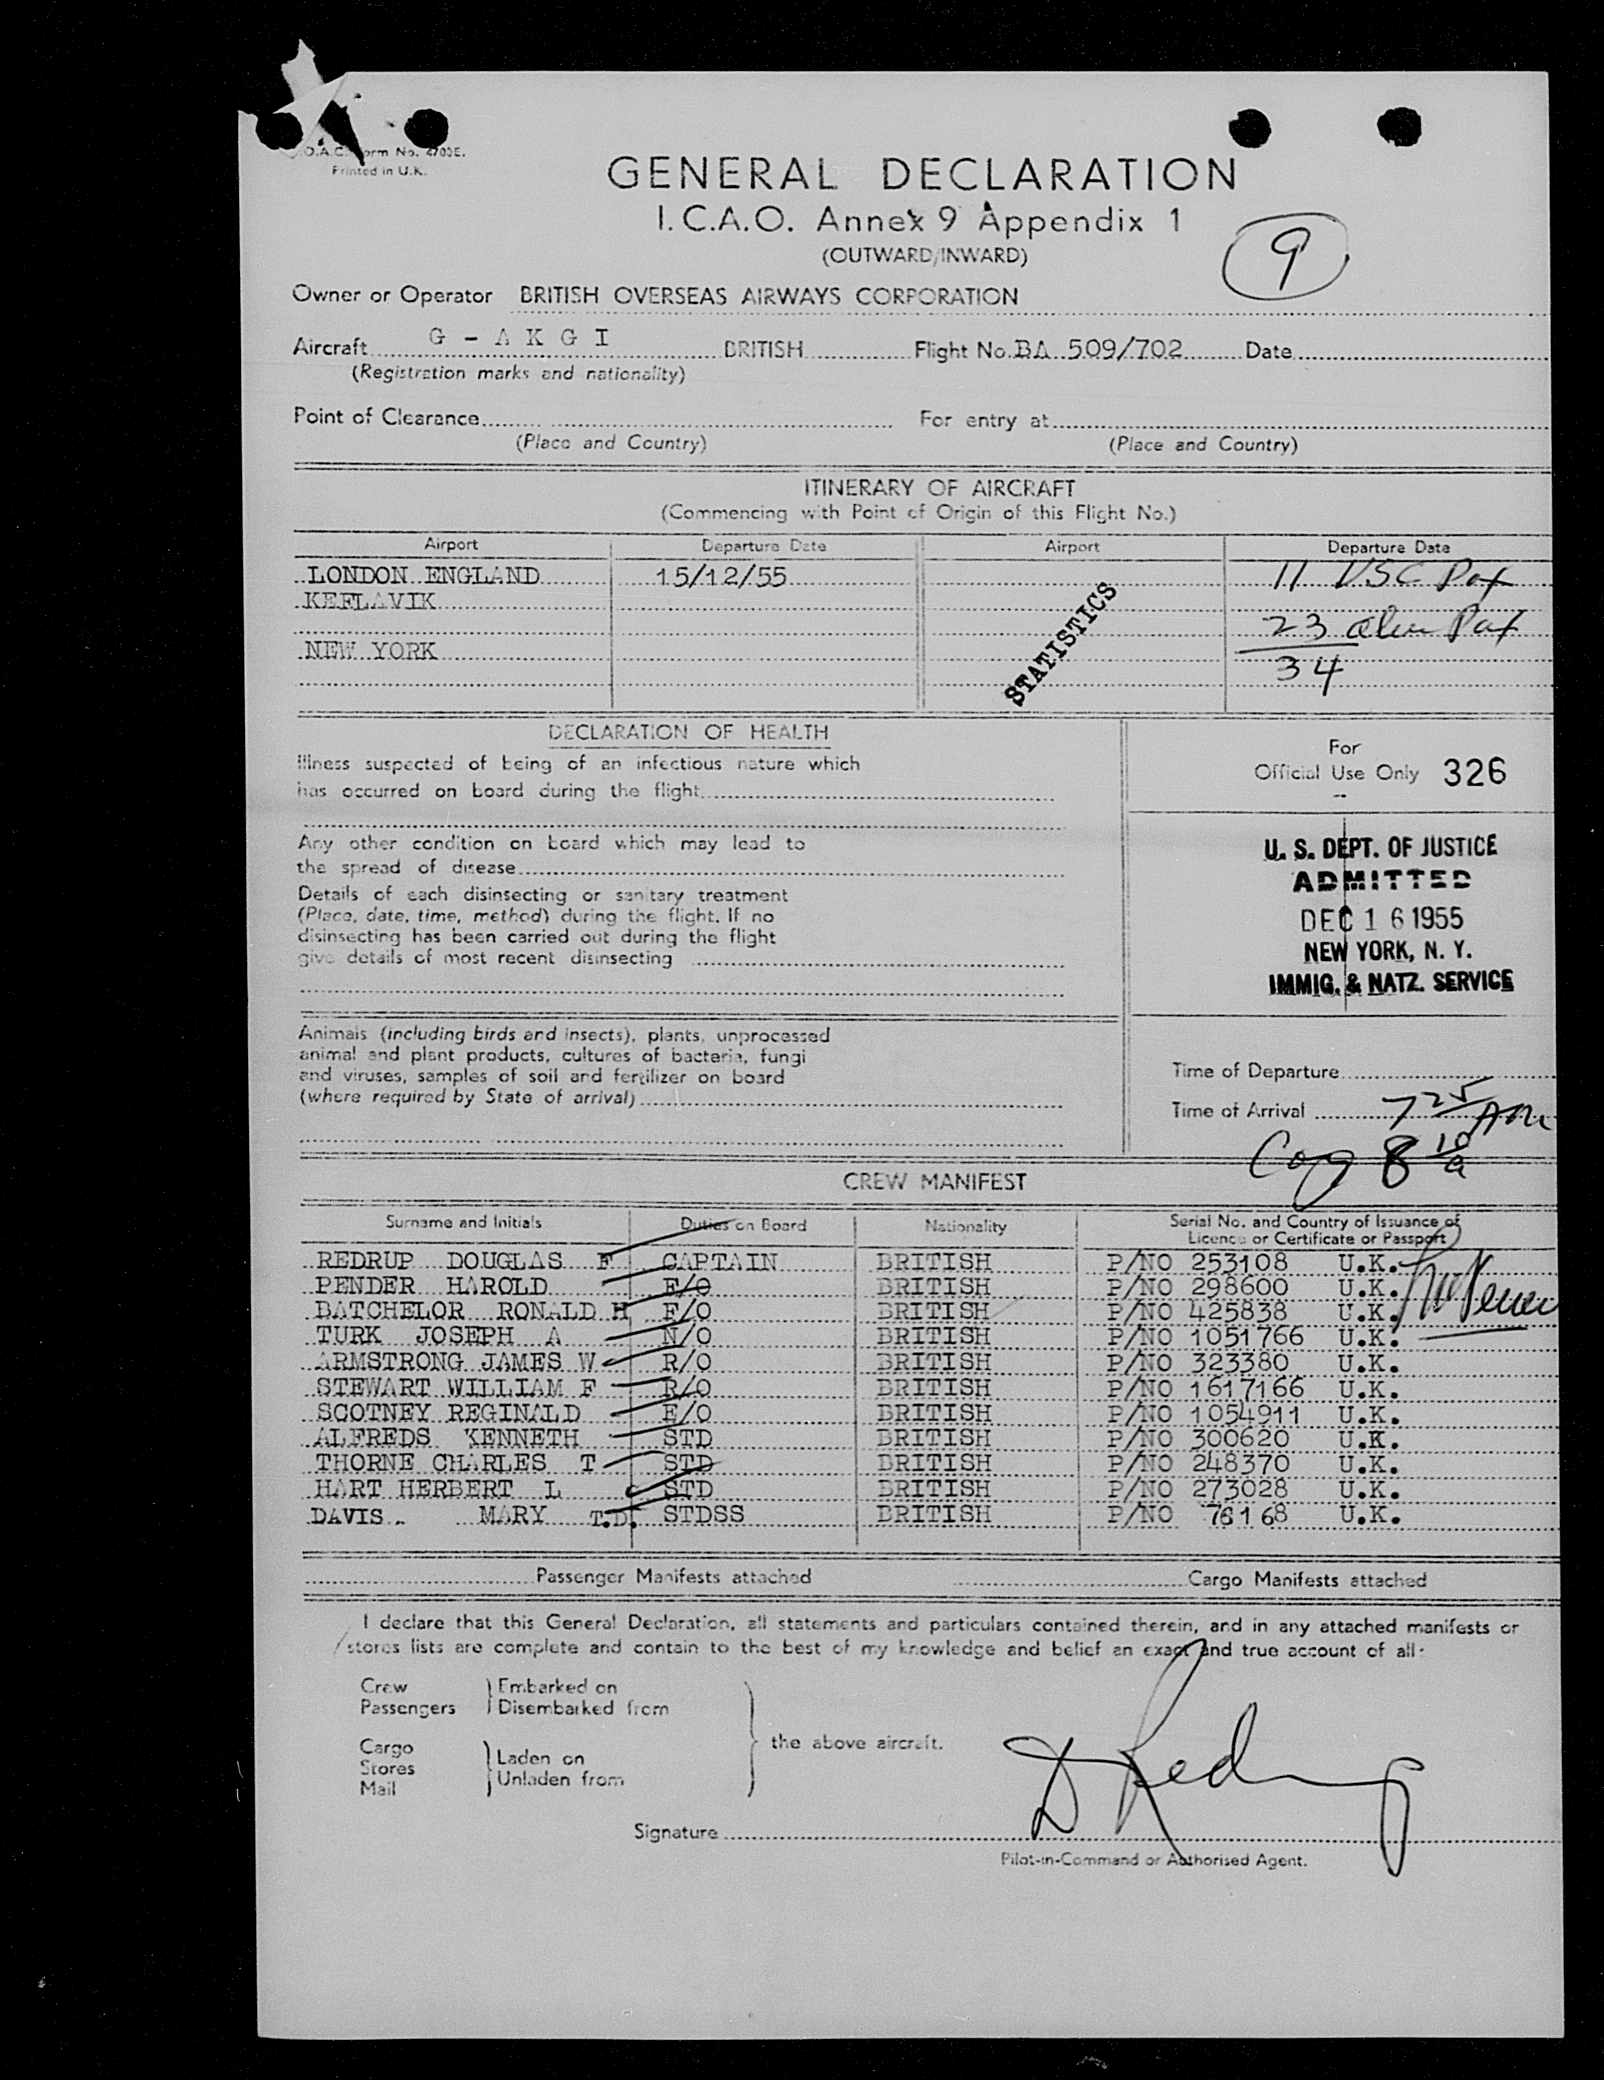 O.A.C. Form No. 4703E.
Printed in U.K.
GENERAL DECLARATION
I.C.A.O. Annex 9 Appendix 1
(OUTWARD/INWARD)
9
Owner or Operator BRITISH OVERSEAS AIRWAYS CORPORATION
Aircraft G - A K G I BRITISH Flight No. BA 509/702 Date
(Registration marks and nationality)
Point of Clearance For entry at
(Place and Country) (Place and Country)
ITINERARY OF AIRCRAFT
(Commencing with Point of Origin of this Flight No.)
Airport Departure Date Airport Departure Date
LONDON ENGLAND 15/12/55 11 USC Pax
KEFLAVIK
23 alien Pax
NEW YORK
34
STATISTICS
DECLARATION OF HEALTH
Illness suspected of being of an infectious nature which
has occurred on board during the flight
Any other condition on board which may lead to
the spread of disease
Details of each disinsecting or sanitary treatment
(Place, date, time, method) during the flight. If no
disinsecting has been carried out during the flight
give details of most recent disinsecting
For
Official Use Only 326
U. S. DEPT. OF JUSTICE
ADMITTED
DEC 16 1955
NEW YORK, N. Y.
IMMIG. & NATZ. SERVICE
Animals (including birds and insects), plants, unprocessed
animal and plant products, cultures of bacteria, fungi
and viruses, samples of soil and fertilizer on board
(where required by State of arrival)
Time of Departure
Time of Arrival 7 25 AM
8 10 a
CREW MANIFEST
Surname and Initials Duties on Board Nationality Serial No. and Country of Issuance of
Licence or Certificate or Passport
REDRUP DOUGLAS F CAPTAIN BRITISH P/NO 253108 U.K.
PENDER HAROLD F/O BRITISH P/NO 298600 U.K.
BATCHELOR RONALD H F/O BRITISH P/NO 425838 U.K.
TURK JOSEPH A N/O BRITISH P/NO 1051766 U.K.
ARMSTRONG JAMES W R/O BRITISH P/NO 323380 U.K.
STEWART WILLIAM F R/O BRITISH P/NO 1617166 U.K.
SCOTNEY REGINALD E/O BRITISH P/NO 1054911 U.K.
ALFREDS KENNETH STD BRITISH P/NO 300620 U.K.
THORNE CHARLES T STD BRITISH P/NO 248370 U.K.
HART HERBERT L STD BRITISH P/NO 273028 U.K.
DAVIS. MARY T.D. STDSS BRITISH P/NO 76168 U.K.
Passenger Manifests attached Cargo Manifests attached
I declare that this General Declaration, all statements and particulars contained therein, and in any attached manifests or
stores lists are complete and contain to the best of my knowledge and belief an exact and true account of all:
Crew Embarked on
Passengers Disembarked from
the above aircraft.
Cargo
Stores
Mail
Laden on
Unladen from
D Redrup
Signature
Pilot-in-Command or Authorised Agent.